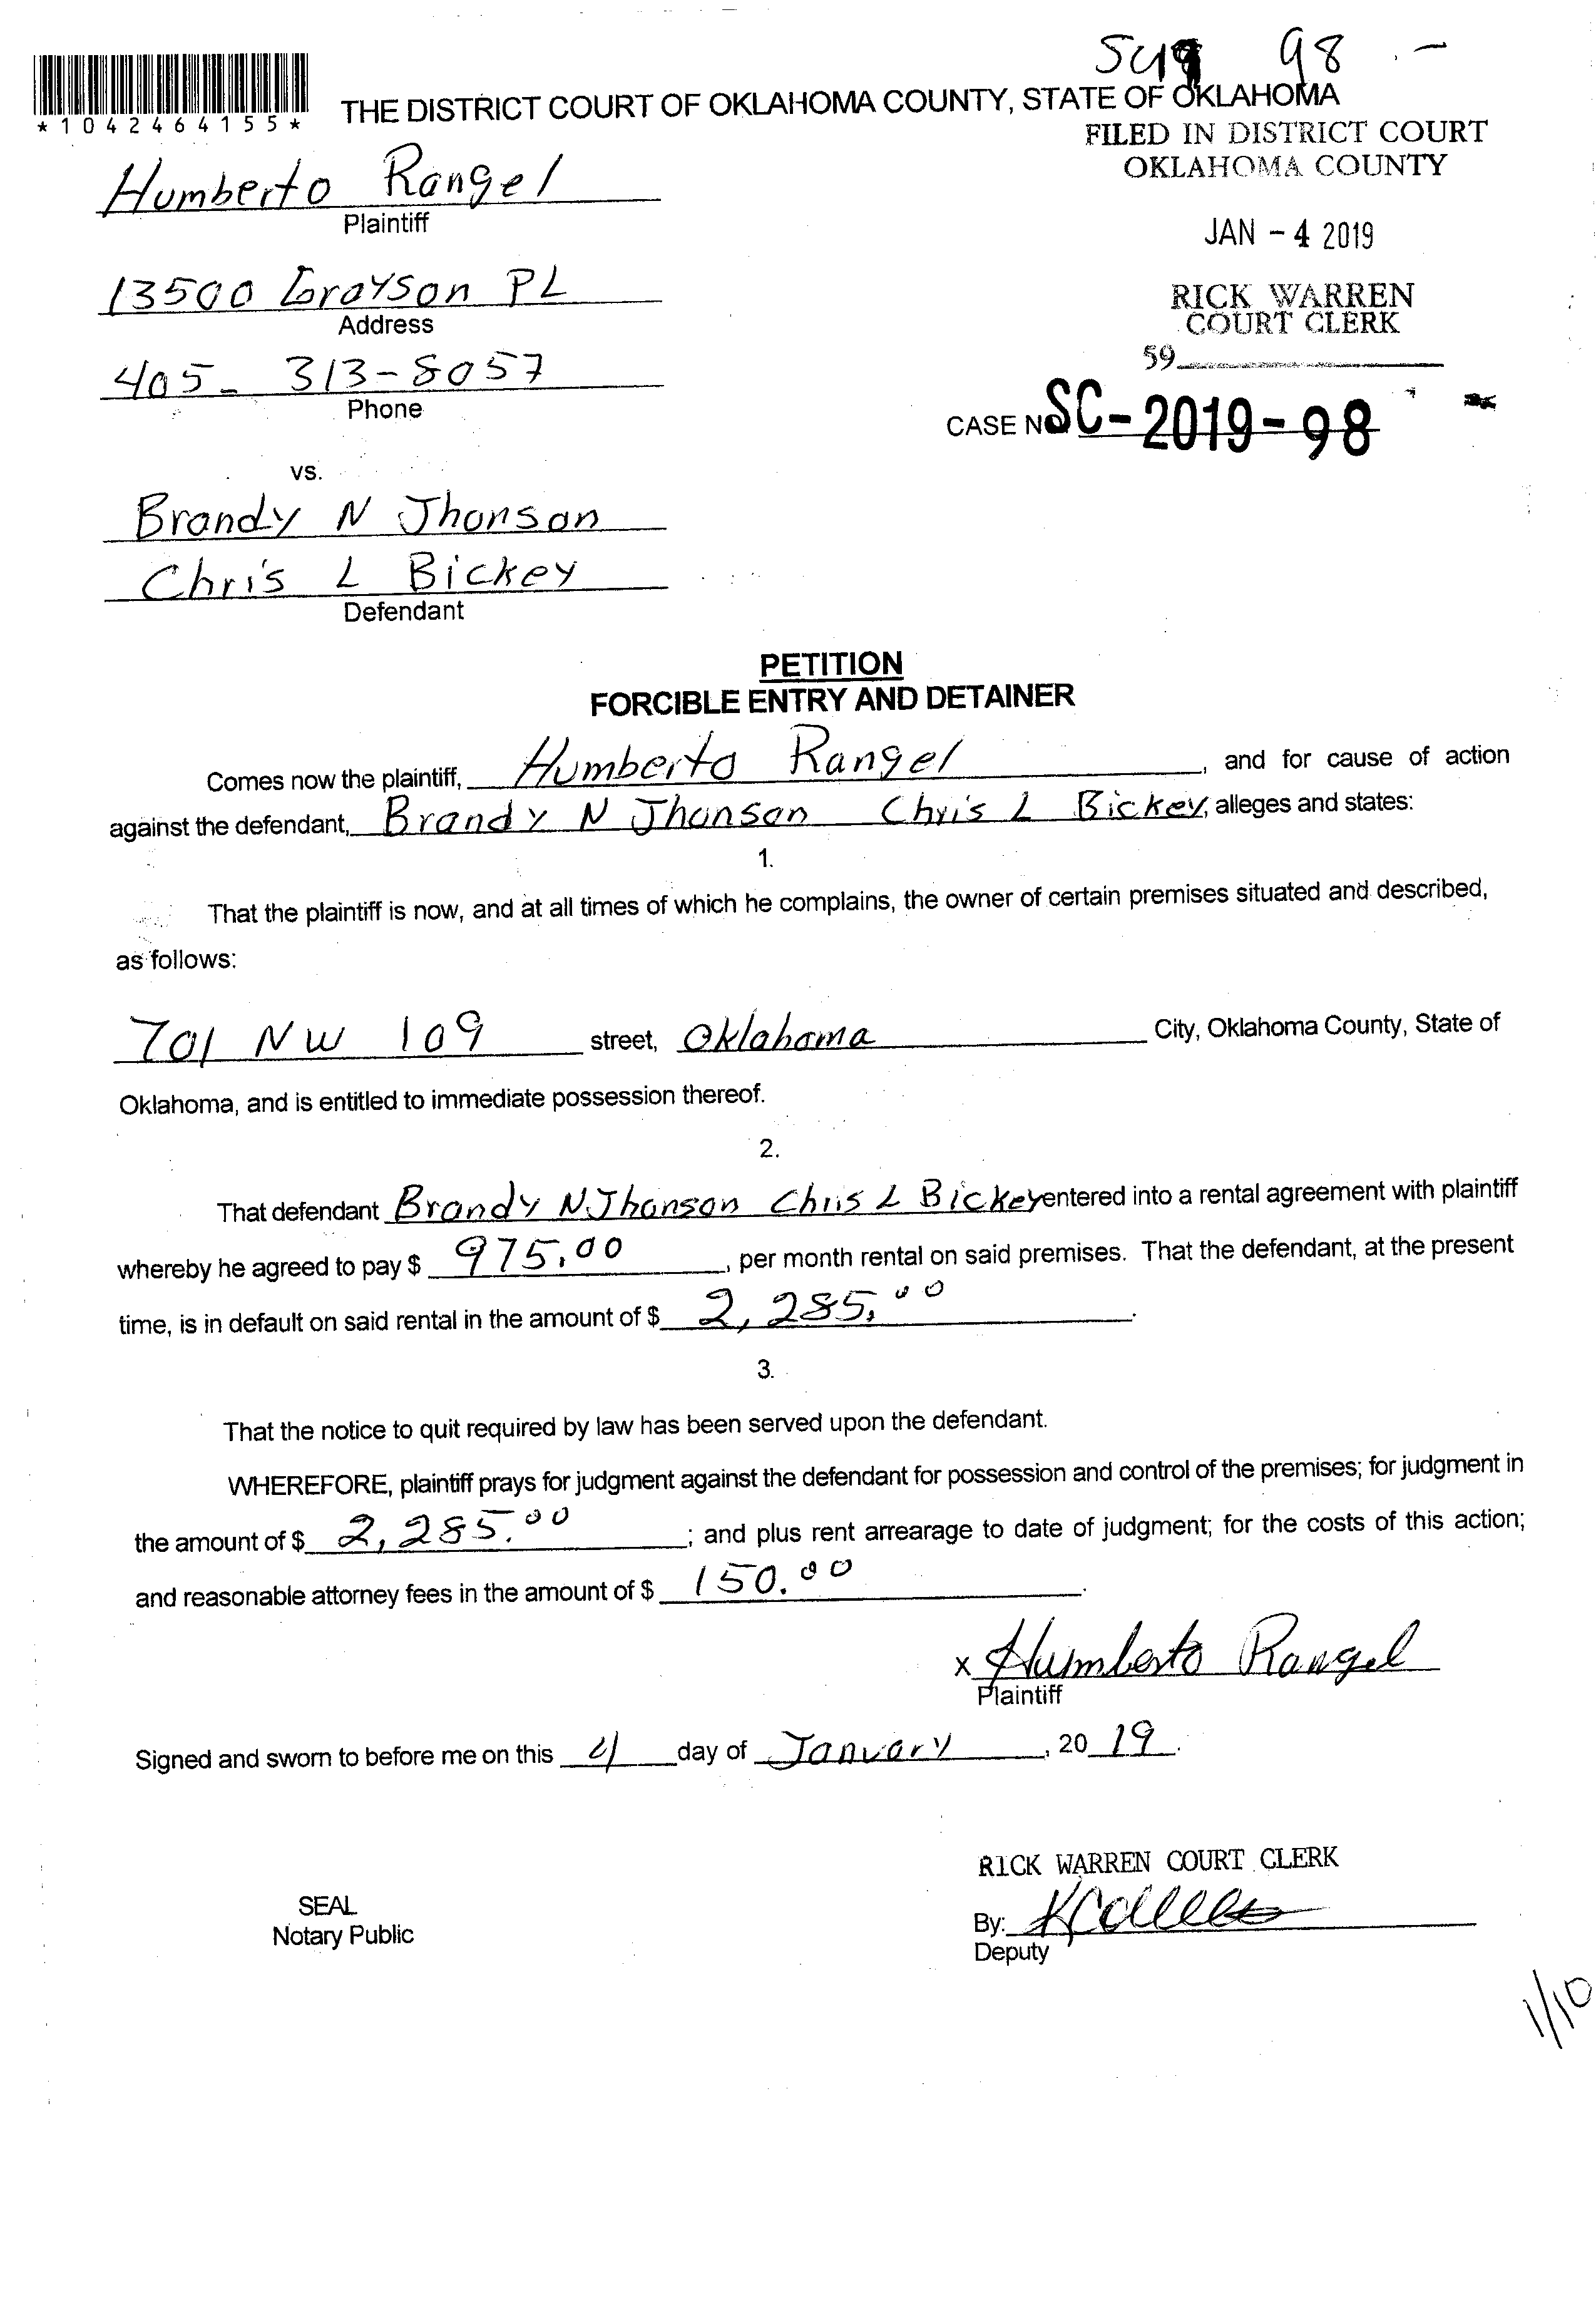 98
*1042464155*
THE DISTRICT COURT OF OKLAHOMA COUNTY, STATE OF OKLAHOMA
FILED IN DISTRICT COURT
OKLAHOMA COUNTY
Humberto Rangel
Plaintiff
JAN - 4 2019
13500 Grayson PL
Address
RICK WARREN
COURT CLERK
59
405- 313-8057
Phone
CASE NO SC-2019-98
vs.
Brandy N Jhonson
Chris L Bickey
Defendant
PETITION
FORCIBLE ENTRY AND DETAINER
Comes now the plaintiff, Humberto Rangel, and for cause of action
against the defendant, Brandy N Jhonson Chris L Bickey, alleges and states:
1.
That the plaintiff is now, and at all times of which he complains, the owner of certain premises situated and described,
as follows:
701 NW 109 street, Oklahoma City, Oklahoma County, State of
Oklahoma, and is entitled to immediate possession thereof.
2.
That defendant Brandy N Jhonson Chris L Bickey entered into a rental agreement with plaintiff
whereby he agreed to pay $ 975.00, per month rental on said premises. That the defendant, at the present
time, is in default on said rental in the amount of $ 2,285.00.
3.
That the notice to quit required by law has been served upon the defendant.
WHEREFORE, plaintiff prays for judgment against the defendant for possession and control of the premises; for judgment in
the amount of $ 2,285.00; and plus rent arrearage to date of judgment; for the costs of this action;
and reasonable attorney fees in the amount of $ 150.00.
x Humberto Rangel
Plaintiff
Signed and sworn to before me on this 4 day of January, 2019.
RICK WARREN COURT CLERK
SEAL
Notary Public
By:
Deputy
1/10